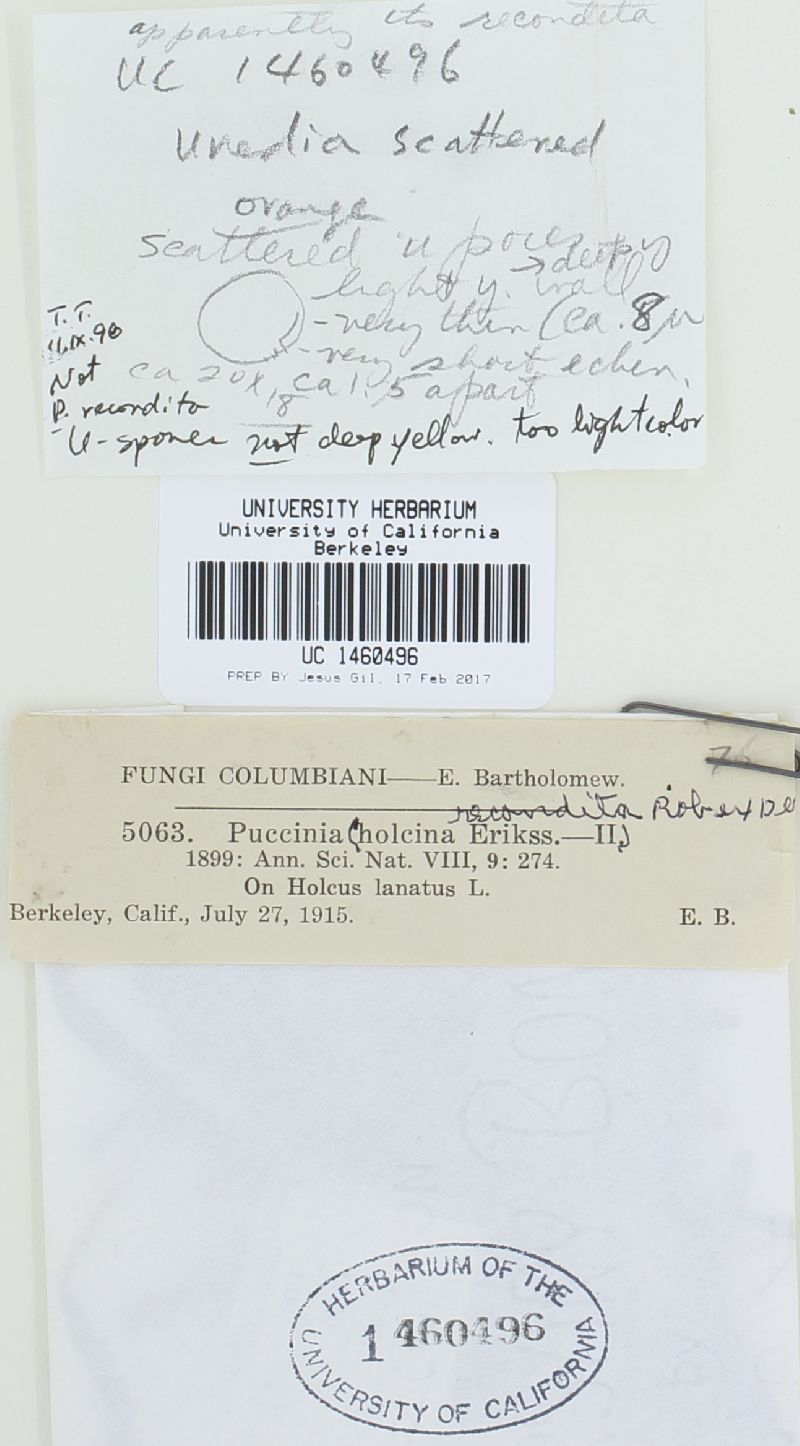 apparently its recondita
UC 1460496
Uredia scattered
orange
scattered u pores
→ deep y
light y. wall
- very thin (ca. 8 μ
- very short echin.
T. T.
11.IX.90
Not
ca 20 x 18 ca 1.5 apart
P. recondita
- U-spores not deep yellow. too light color
UNIVERSITY HERBARIUM
University of California
Berkeley
UC 1460496
PREP BY Jesus Gil, 17 Feb 2017
76
FUNGI COLUMBIANI——E. Bartholomew.
recondita Rob ex De
5063. Puccinia (holcina Erikss.—II)
1899: Ann. Sci. Nat. VIII, 9: 274.
On Holcus lanatus L.
Berkeley, Calif., July 27, 1915. E. B.
HERBARIUM OF THE
1460496
UNIVERSITY OF CALIFORNIA